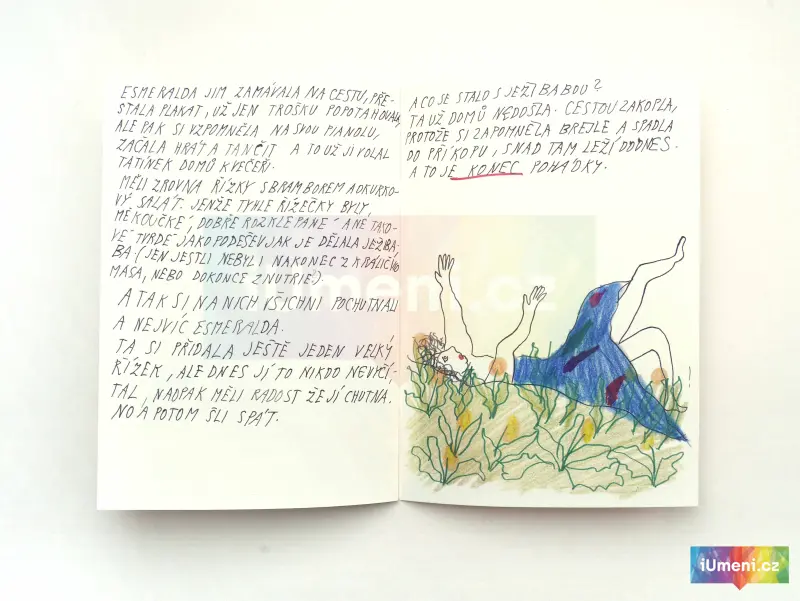 ESMERALDA JIM ZAMÁVALA NA CESTU, PŘE-
STALA PLAKAT, UŽ JEN TROŠKU POPOTAHOVALA,
ALE PAK SI VZPOMNĚLA NA SVOU PIANOLU,
ZAČALA HRÁT A TANČIT A TO UŽ JI VOLAL
TATÍNEK DOMŮ K VEČEŘI.
MĚLI ZROVNA ŘÍZKY S BRAMBOREM A OKURKO-
VÝ SALÁT. JENŽE TYHLE ŘÍZEČKY BYLY,
MĚKOUČKÉ, DOBŘE ROZKLEPANÉ A NE TAKO-
VÉ TVRDÉ JAKO PODEŠEV JAK JE DĚLALA JEŽIBA-
BA (JEN JESTLI NEBYLI NAKONEC Z KRÁLIČÍHO
MASA, NEBO DOKONCE Z NUTRIE).
A TAK SI NA NICH VŠICHNI POCHUTNALI
A NEJVÍC ESMERALDA.
TA SI PŘIDALA JEŠTĚ JEDEN VELKÝ
ŘÍZEK, ALE DNES JÍ TO NIKDO NEVYČÍ-
TAL, NAOPAK MĚLI RADOST ŽE JÍ CHUTNÁ.
NO A POTOM ŠLI SPÁT.
A CO SE STALO S JEŽIBABOU?
TA UŽ DOMŮ NEDOŠLA. CESTOU ZAKOPLA,
PROTOŽE SI ZAPOMNĚLA BREJLE A SPADLA
DO PŘÍKOPU, SNAD TAM LEŽÍ DODNES.
A TO JE KONEC POHÁDKY.
iUmeni.cz
iUmeni.cz